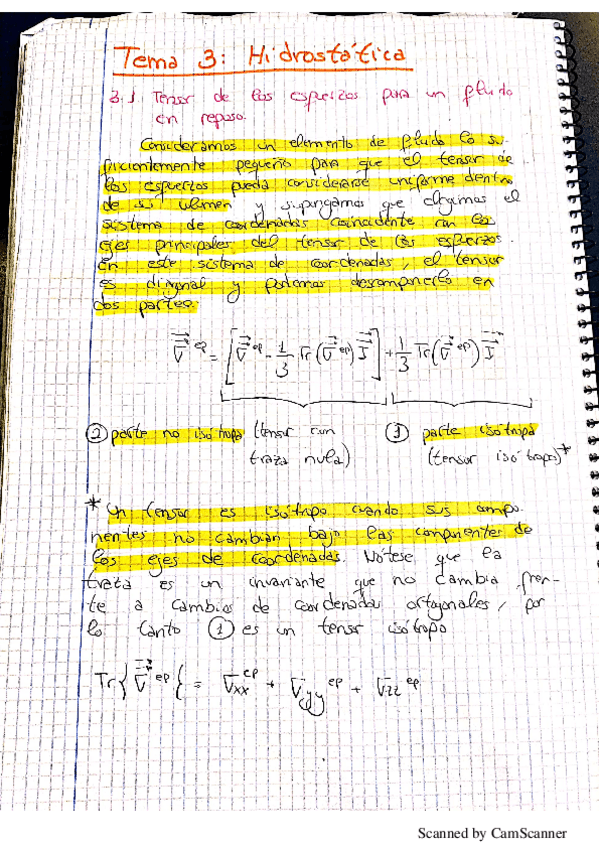 Tema 3: Hidrostática
3.1. Tensor de los esfuerzos para un fluido
en reposo.
Consideramos un elemento de fluido lo su
ficientemente pequeño para que el tensor de
los esfuerzos pueda considerarse uniforme dentro
de su volumen y supongamos que elegimos el
sistema de coordenadas coincidente con los
ejes principales del tensor de los esfuerzos.
En este sistema de coordenadas, el tensor
es diagonal y podemos descomponerlo en
dos partes
σ^ep = [σ^ep - 1/3 Tr(σ^ep) I] + 1/3 Tr(σ^ep) I
② parte no isótropa (tensor con
traza nula)
① parte isótropa
(tensor isótropo)*
* Un tensor es isótropo cuando sus compo
nentes no cambian bajo las componentes de
los ejes de coordenadas. Nótese que la
traza es un invariante que no cambia fren-
te a cambios de coordenadas ortogonales, por
lo tanto ① es un tensor isótropo
Tr{σ^ep} = σxx^ep + σyy^ep + σzz^ep
Scanned by CamScanner